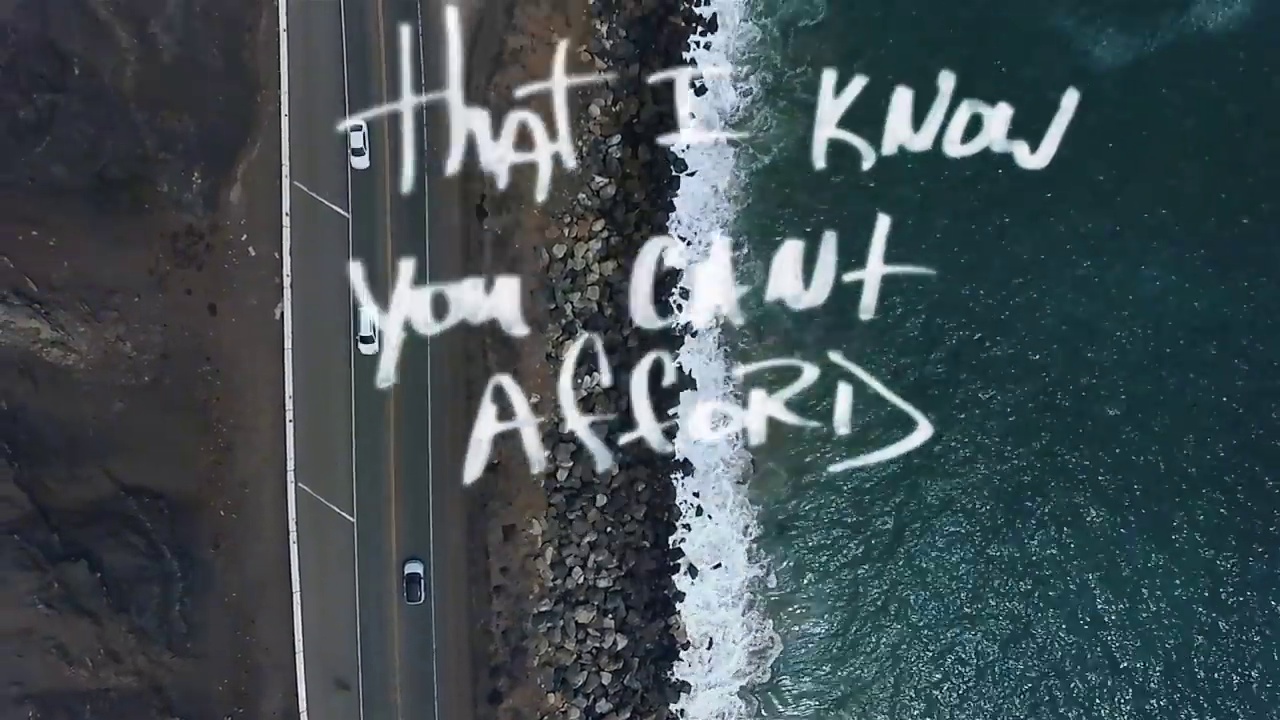 that I KNOW
you CANt
AffORD